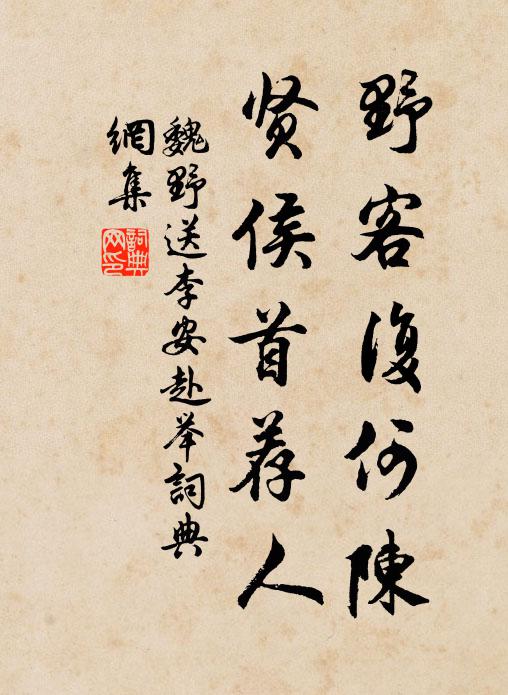 野客復何陳
贤侯首荐人
魏野送李安赴举詞典
網集
詞典网印